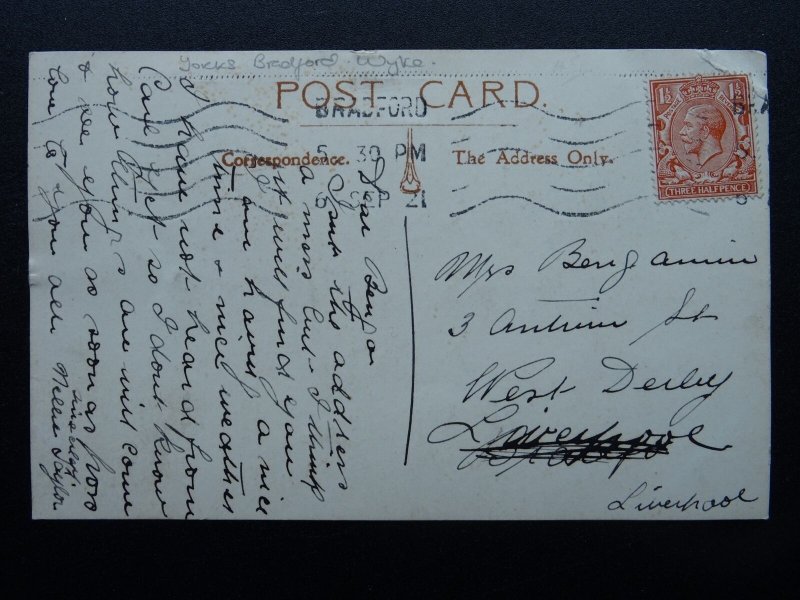 Yorks Bradford Wyke.
POST CARD.
BRADFORD
5 30 PM
21
Correspondence.
The Address Only.
1½
1½
THREE HALF PENCE
Dear Benja
the address
a mess but I think
it will find you
I am having a nice
time & nice weather
I have not heard from
Carl yet so I dont know
how things are will come
& see you as soon as poss
love to you all Nellie
Mrs Benjamin
3 Antrim St
West Derby
Liverpool
Liverpool